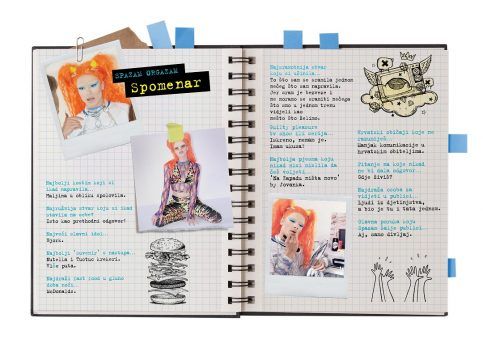 SPAZAM ORGAZAM
Spomenar
Najbolji kostim koji si
ikad napravila...
Haljina u obliku spolovila.
Najružnija stvar koju si ikad
stavila na sebe?
Isto kao prethodni odgovor!
Najveći glavni idol...
Bjork.
Najbolji 'souvenir' s nastupa...
Nutella i Tuctuc krekeri.
Više puta.
Najdraži fast food u gluho
doba noći...
McDonalds.
Najsramotnija stvar
koju si učinila...
To što sam se sramila jednom
nečeg što sam napravila.
Jer sram je bezveze i
ne moramo se sramiti nečega
što smo u jednom trenu
vidjeli kao
nešto što želimo.
Guilty pleasure
Iskreno, neman je.
Imam ukusa!
Najbolja pjesma koju
nikad nisi mislila da
ćeš voljeti...
'Na Zapadu ništa novo'
by Jovanka.
Hrvatski običaji koje ne
razumiješ...
Manjak komunikacije u
hrvatskim obiteljima.
Pitanje na koje nikad
ne bi dala odgovor...
Gdje živiš?
Najdraža osoba za
vidjeti u publici...
Ljudi iz djetinjstva,
a bio je tu i tata jednom.
Glavna poruka koju
Spazam šalje publici?
Aj, samo divljaj.